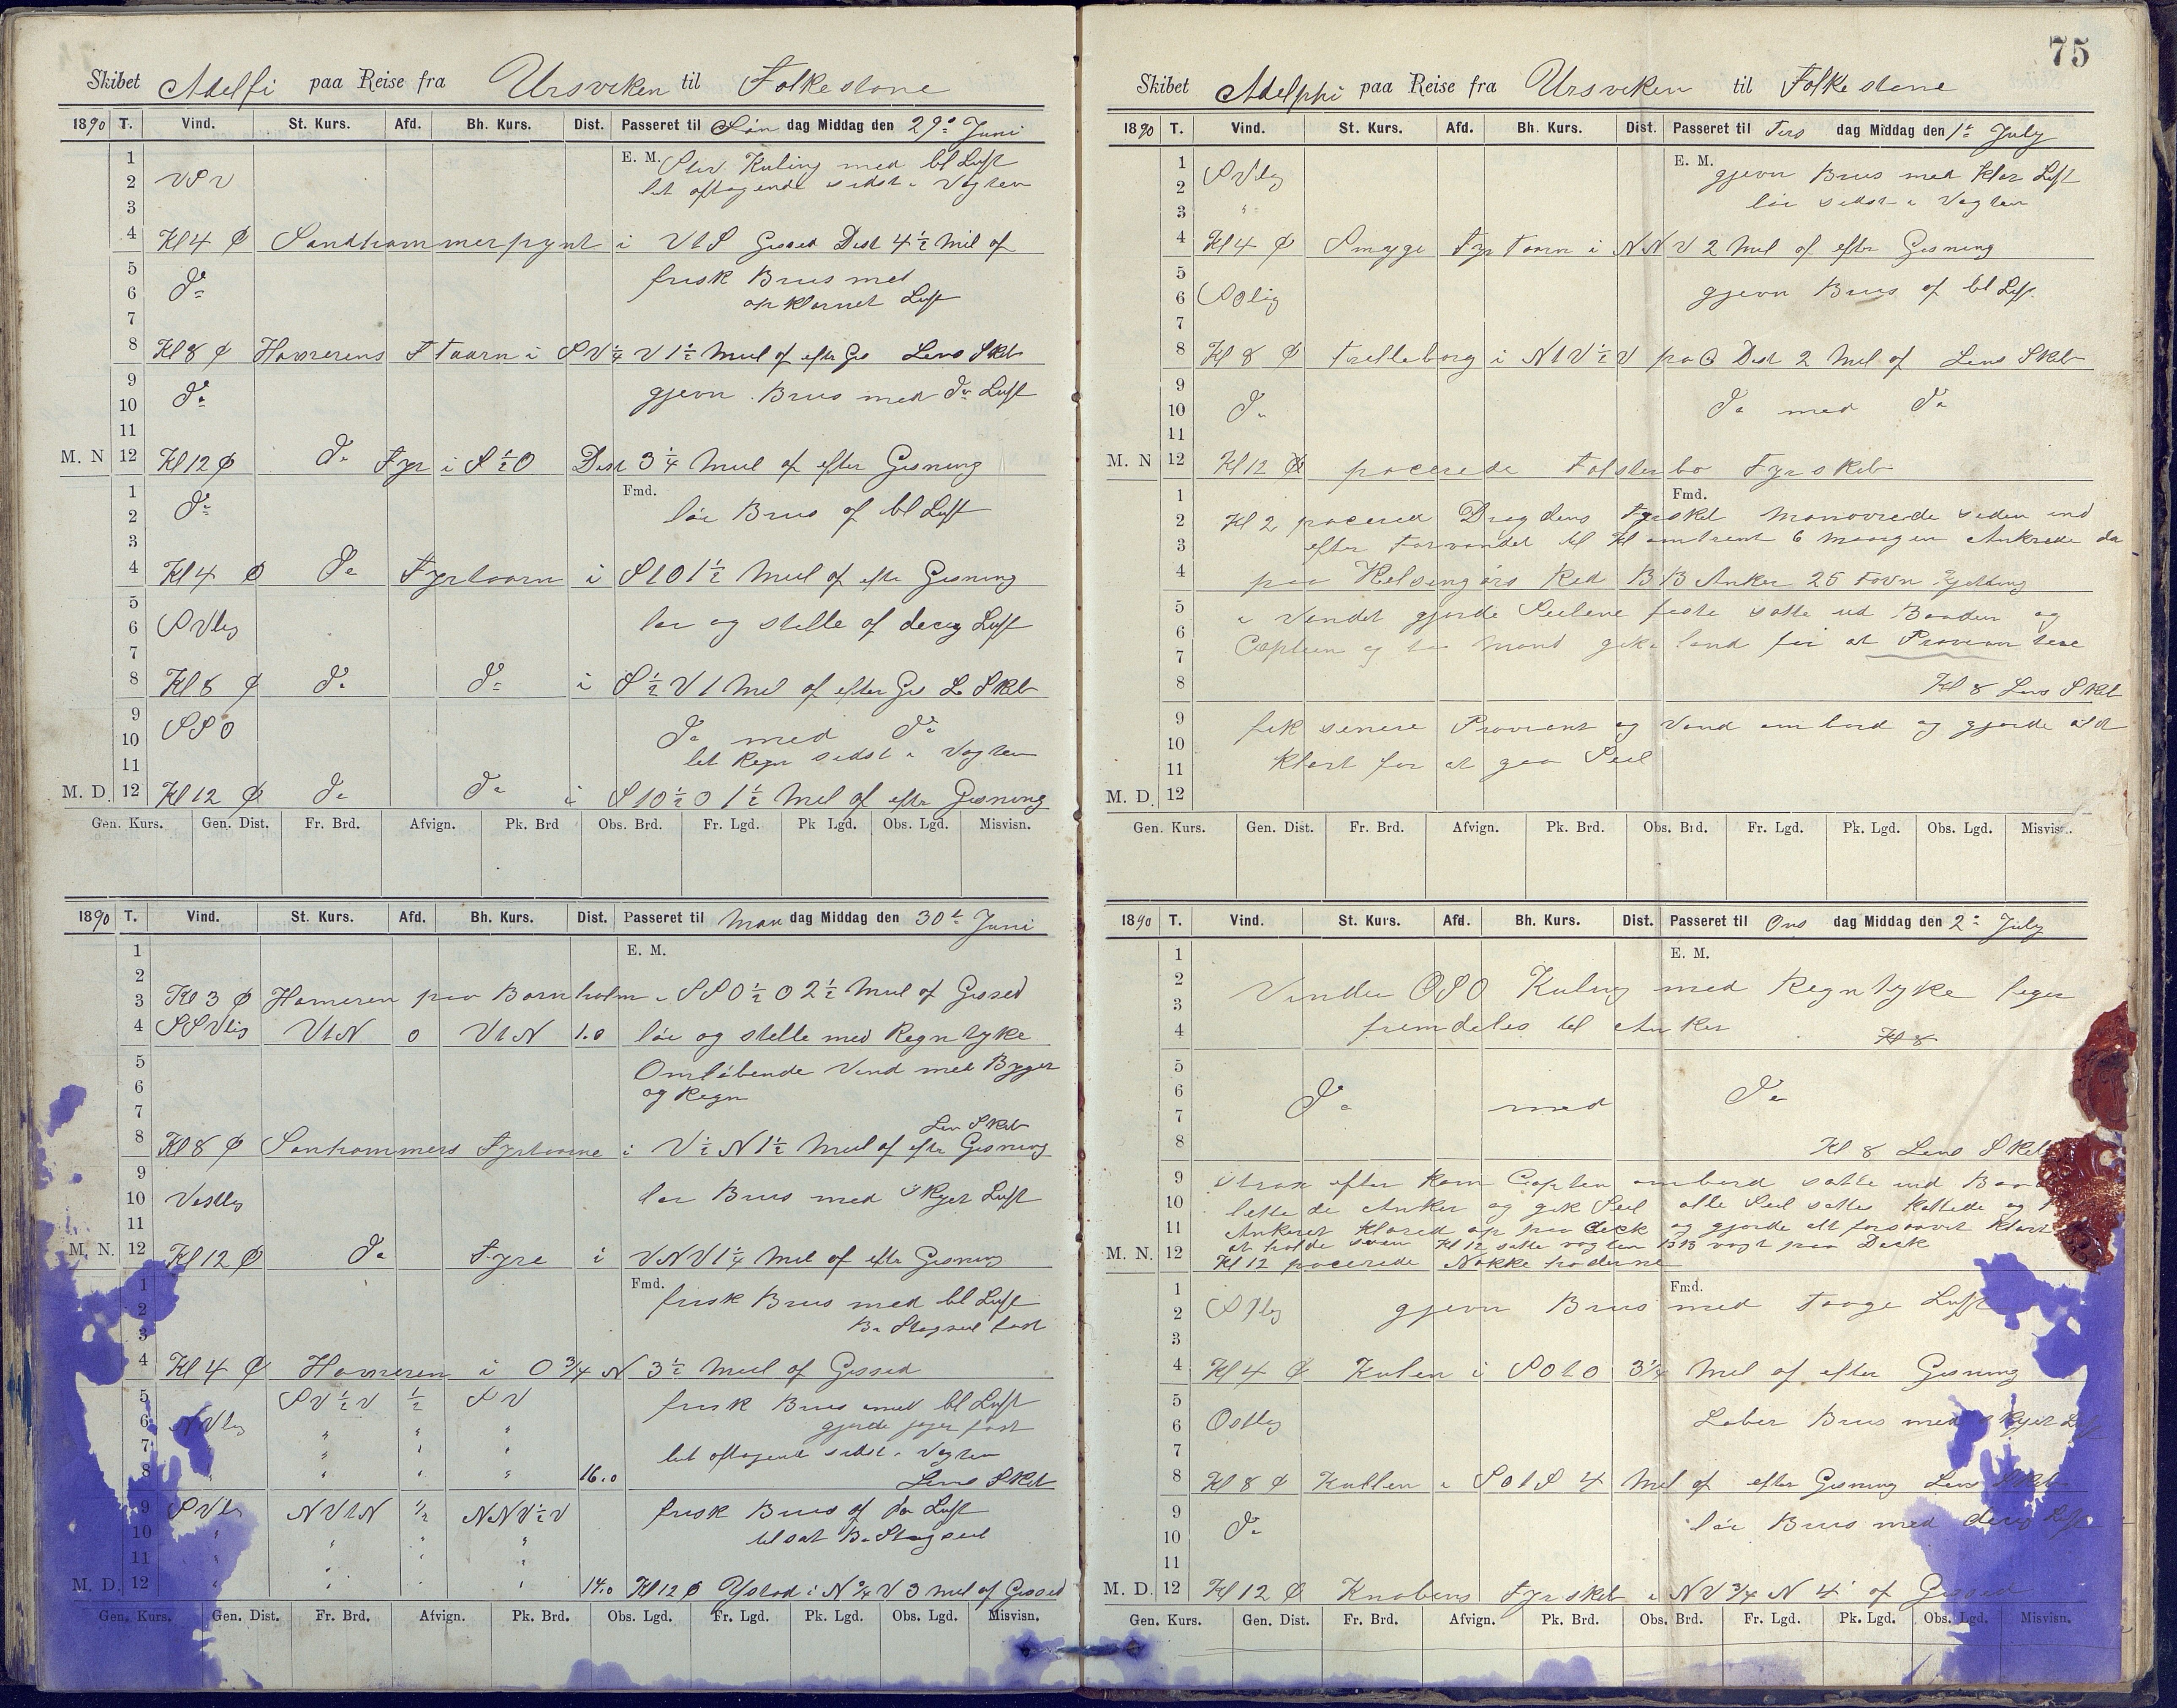 Skibet Adelfi paa Reise fra Ursviken til Folkestone
1890 T. Vind. St. Kurs. Afd. Bh. Kurs. Dist. Passeret til Søn dag Middag den 29de Juni
1 E. M. Stiv Kuling med bl Luft
2 VSV let aftagende sidst i Vagten
3
4 Kl 4 Sandhammerpynt i VtS Gisset Dist 4½ Mil af
5 frisk Brus med
6 Do opklarnet Luft
7
8 Kl 8 Hammerens F Taarn i SV¼V 1½ Miil af efter Gis Lens Skib
9 Do gjevn Brus med do Luft
10
11
M. N 12 Kl 12 Do Fyr i S½O Dist 3¼ Miil af efter Gisning
1 Fmd.
2 Do løi Brus af bl Luft
3
4 Kl 4 Do Fyrtaarn i StO 1½ Miil af efter Gisning
5
6 SVlig løi og stille af deisig Luft
7
8 Kl 8 Do Do i S½V 1 Mil af efter Gis L Skib
9 SSO Do med Do
10 let Regn sidst i Vagten
11
M. D. 12 Kl 12 Do Do i StO½O 1½ Mil af efter Gisning
Gen. Kurs. Gen. Dist. Fr. Brd. Afvign. Pk. Brd Obs. Brd. Fr. Lgd. Pk Lgd. Obs. Lgd. Misvisn.
1890 T. Vind. St. Kurs. Afd. Bh. Kurs. Dist. Passeret til Man dag Middag den 30te Juni
1 E. M.
2
3 Kl 3 Hameren paa Bornholm i SSO½O 2½ Miil af Gisset
4 SSVlig VtN 0 VtN 1.0 løi og stille med Regntyke
5 Omløbende Vind med Byger
6 og Regn
7
Len Skib
8 Kl 8 Sanhammers Fyrtaarne i V½N 1½ Miil af efter Gisning
9
10 Vestlig løi Brus med Skyet Luft
11
M. N. 12 Kl 12 Do Fyre i VNV 1¼ Mil af efter Gisning
1 Fmd. frisk Brus med bl Luft
2 Br Stagseil fast
3
4 Kl 4 Hammeren i O¾N 3½ Miil af Gisset
5 SV½V ½ SV frisk Brus med bl Luft
6 SVlig " " " gjorde jager fast
7 " " " let aftagende sidst i Vagten
8 " " " " 16.0 Lens Skib
9 SVlig NVtN ½ NNV½V frisk Brus af do Luft
10 " " " " tilsat Br Stagseil
11 " " " "
M. D. 12 " " " " 14.0 Kl 12 Ystad i N¾V 3 Miil af Gisset
Gen. Kurs. Gen. Dist. Fr. Brd. Afvign. Pk. Brd. Obs. Lgd. Fr. Lgd. Pk. Lgd. Obs. Lgd. Misvisn.
75
Skibet Adelphi paa Reise fra Ursviken til Folkestone
1890 T. Vind. St. Kurs. Afd. Bh. Kurs. Dist. Passeret til Tirs dag Middag den 1te July
1 E. M. gjevn Brus med klar Luft
2 SVlig løi sidst i Vagten
3 "
4 Kl 4 Smyge Fyr Taarn i NNV 2 Mil af efter Gisning
5
6 SOlig gjevn Brus af bl Luft
7
8 Kl 8 Trelleborg i NtV½V paa Dist 2 Mil af Lens Skib
9
10 Do Do med Do
11
M. N 12 Kl 12 pacerede Falsterbo Fyrskib
1 Fmd.
2 Kl 2 pacered Dragdens Fyrskib Manøvrede siden ind
3 efter Farvandet til Kl omtrent 6 Morgen Ankrede da
4 paa Helsingørs Red BB Anker 25 Favn Kjetting
5 i Vandet gjorde Seilene faste satte ud Baaden og
6
7 Captein og to Mand gik i land for at Proviantere
8 Kl 8 Lens Skib
9 fik senere Proviant og Vand ombord og gjorde alt
10
11 klart for at gaa Seil
M. D. 12
Gen. Kurs. Gen. Dist. Fr. Brd. Afvign. Pk. Brd. Obs. Brd. Fr. Lgd. Pk. Lgd. Obs. Lgd. Misvisn.
1890 T. Vind. St. Kurs. Afd. Bh. Kurs. Dist. Passeret til Ons dag Middag den 2de July
1 E. M.
2 Vinden OSO Kuling med Regntyke liger
3
4 fremdeles til Anker Kl 8
5
6 Do med Do
7
8 Kl 8 Lens Skib
9 Strax efter kom Captein ombord satte ind
10 lettede Anker og gik Seil alle Seil sattes kattede og
11 Ankeret klared op paa deck og gjorde alt forsaavit klart
M. N. 12 at holde søen Kl 12 satte vagten BB vagt paa Deck
Kl 12 pacerede Nakkehoderne
1 Fmd.
2 SOlig gjevn Brus med Taage Luft
3
4 Kl 4 Kulen i SOtO 3¼ Mil af efter Gisning
5
6 Ostlig Laber Brus med skyet
7
8 Kl 8 Kullen i SOtS 4 Mil af efter Gisning Lens Skib
9 løi Brus med deisig Luft
10 Do
11
M. D. 12 Kl 12 Knobens Fyrskib i NV¾N 4' af Gisset
Gen. Kurs. Gen. Dist. Fr. Brd. Afvign. Pk. Brd. Obs. Brd. Fr. Lgd. Pk. Lgd. Obs. Lgd. Misvisn.